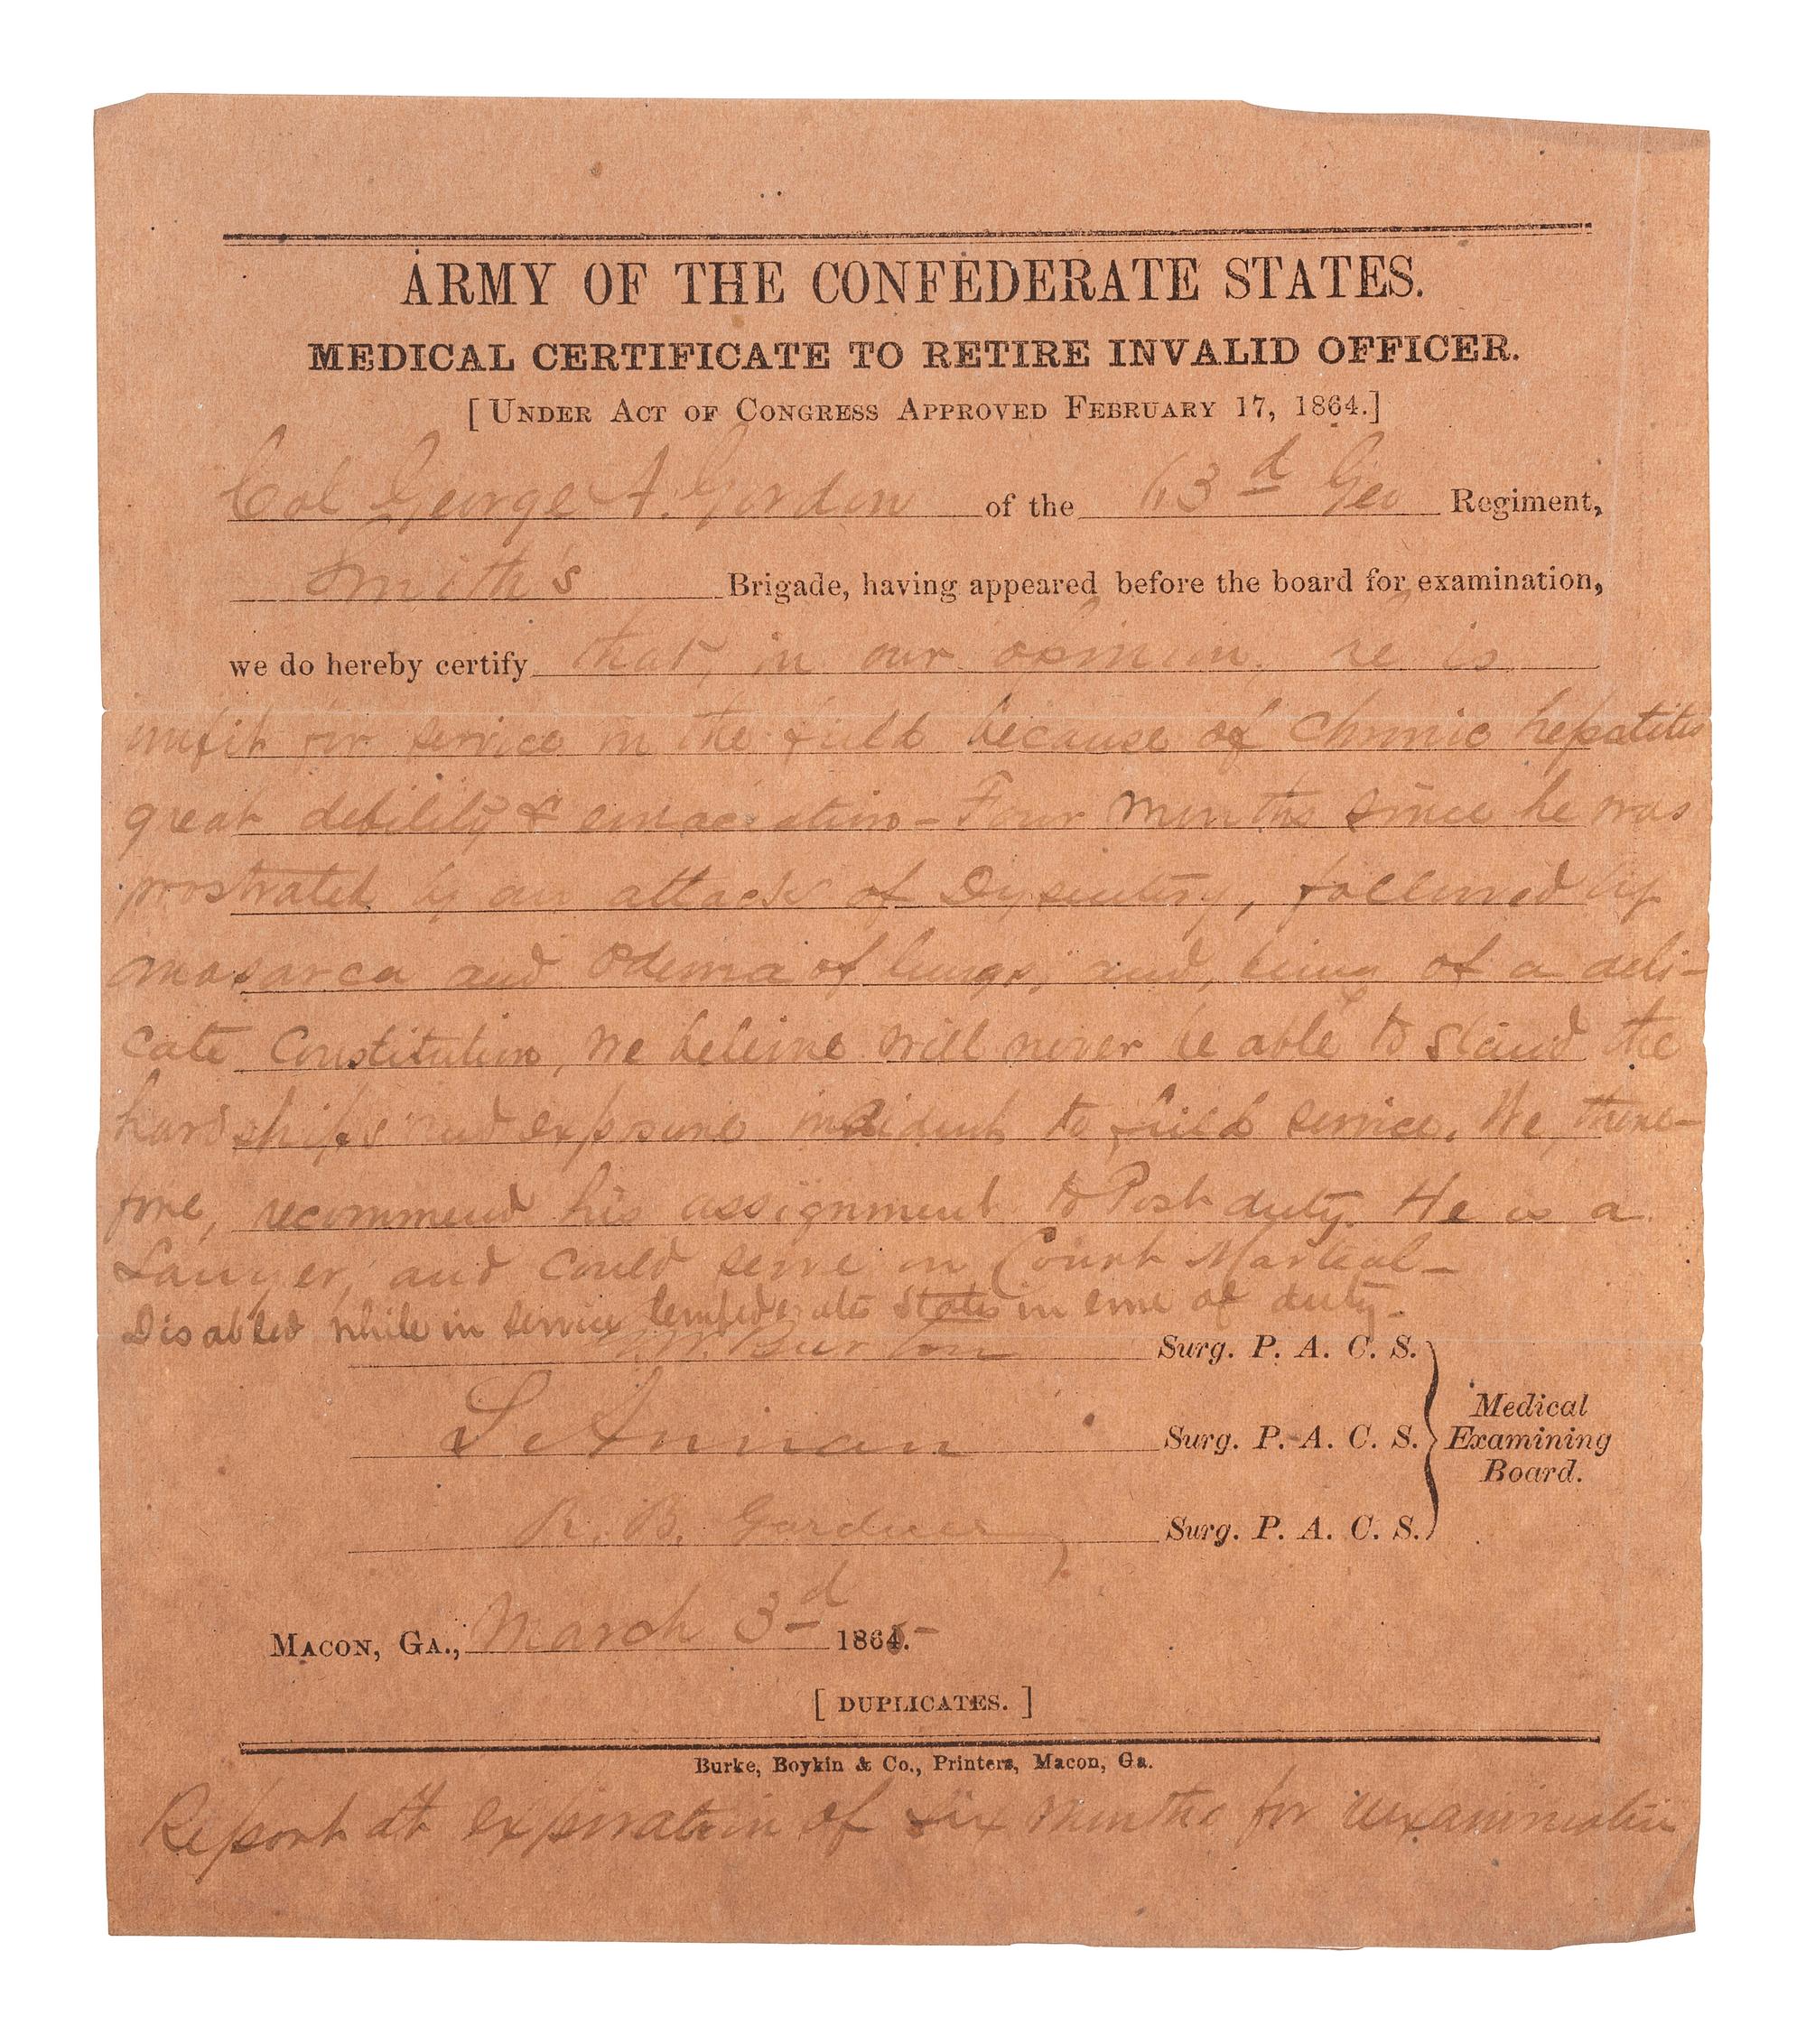 ARMY OF THE CONFEDERATE STATES.
MEDICAL CERTIFICATE TO RETIRE INVALID OFFICER.
[ UNDER ACT OF CONGRESS APPROVED FEBRUARY 17, 1864.]
Col George A. Gordon of the 63d Geo Regiment,
Smith's Brigade, having appeared before the board for examination,
we do hereby certify that, in our opinion, he is
unfit for service in the field because of Chronic hepatitis
great debility & emaciation - Four months since he was
prostrated by an attack of Dysentery, followed by
anasarca and Odema of lungs, and, being of a deli-
cate Constitution, we believe will never be able to stand the
hardships and exposure incident to field service. We, there-
fore, recommend his assignment to Post duty. He is a
Lawyer, and could serve on Court Martial -
Disabled while in service Confederate States in line of duty -
W. Burton Surg. P. A. C. S.
S Annan Surg. P. A. C. S.
Medical
Examining
Board.
R. B. Gardner Surg. P. A. C. S.
MACON, GA., March 3d 1865. -
[ DUPLICATES. ]
Burke, Boykin & Co., Printers, Macon, Ga.
Report at expiration of six months for reexamination